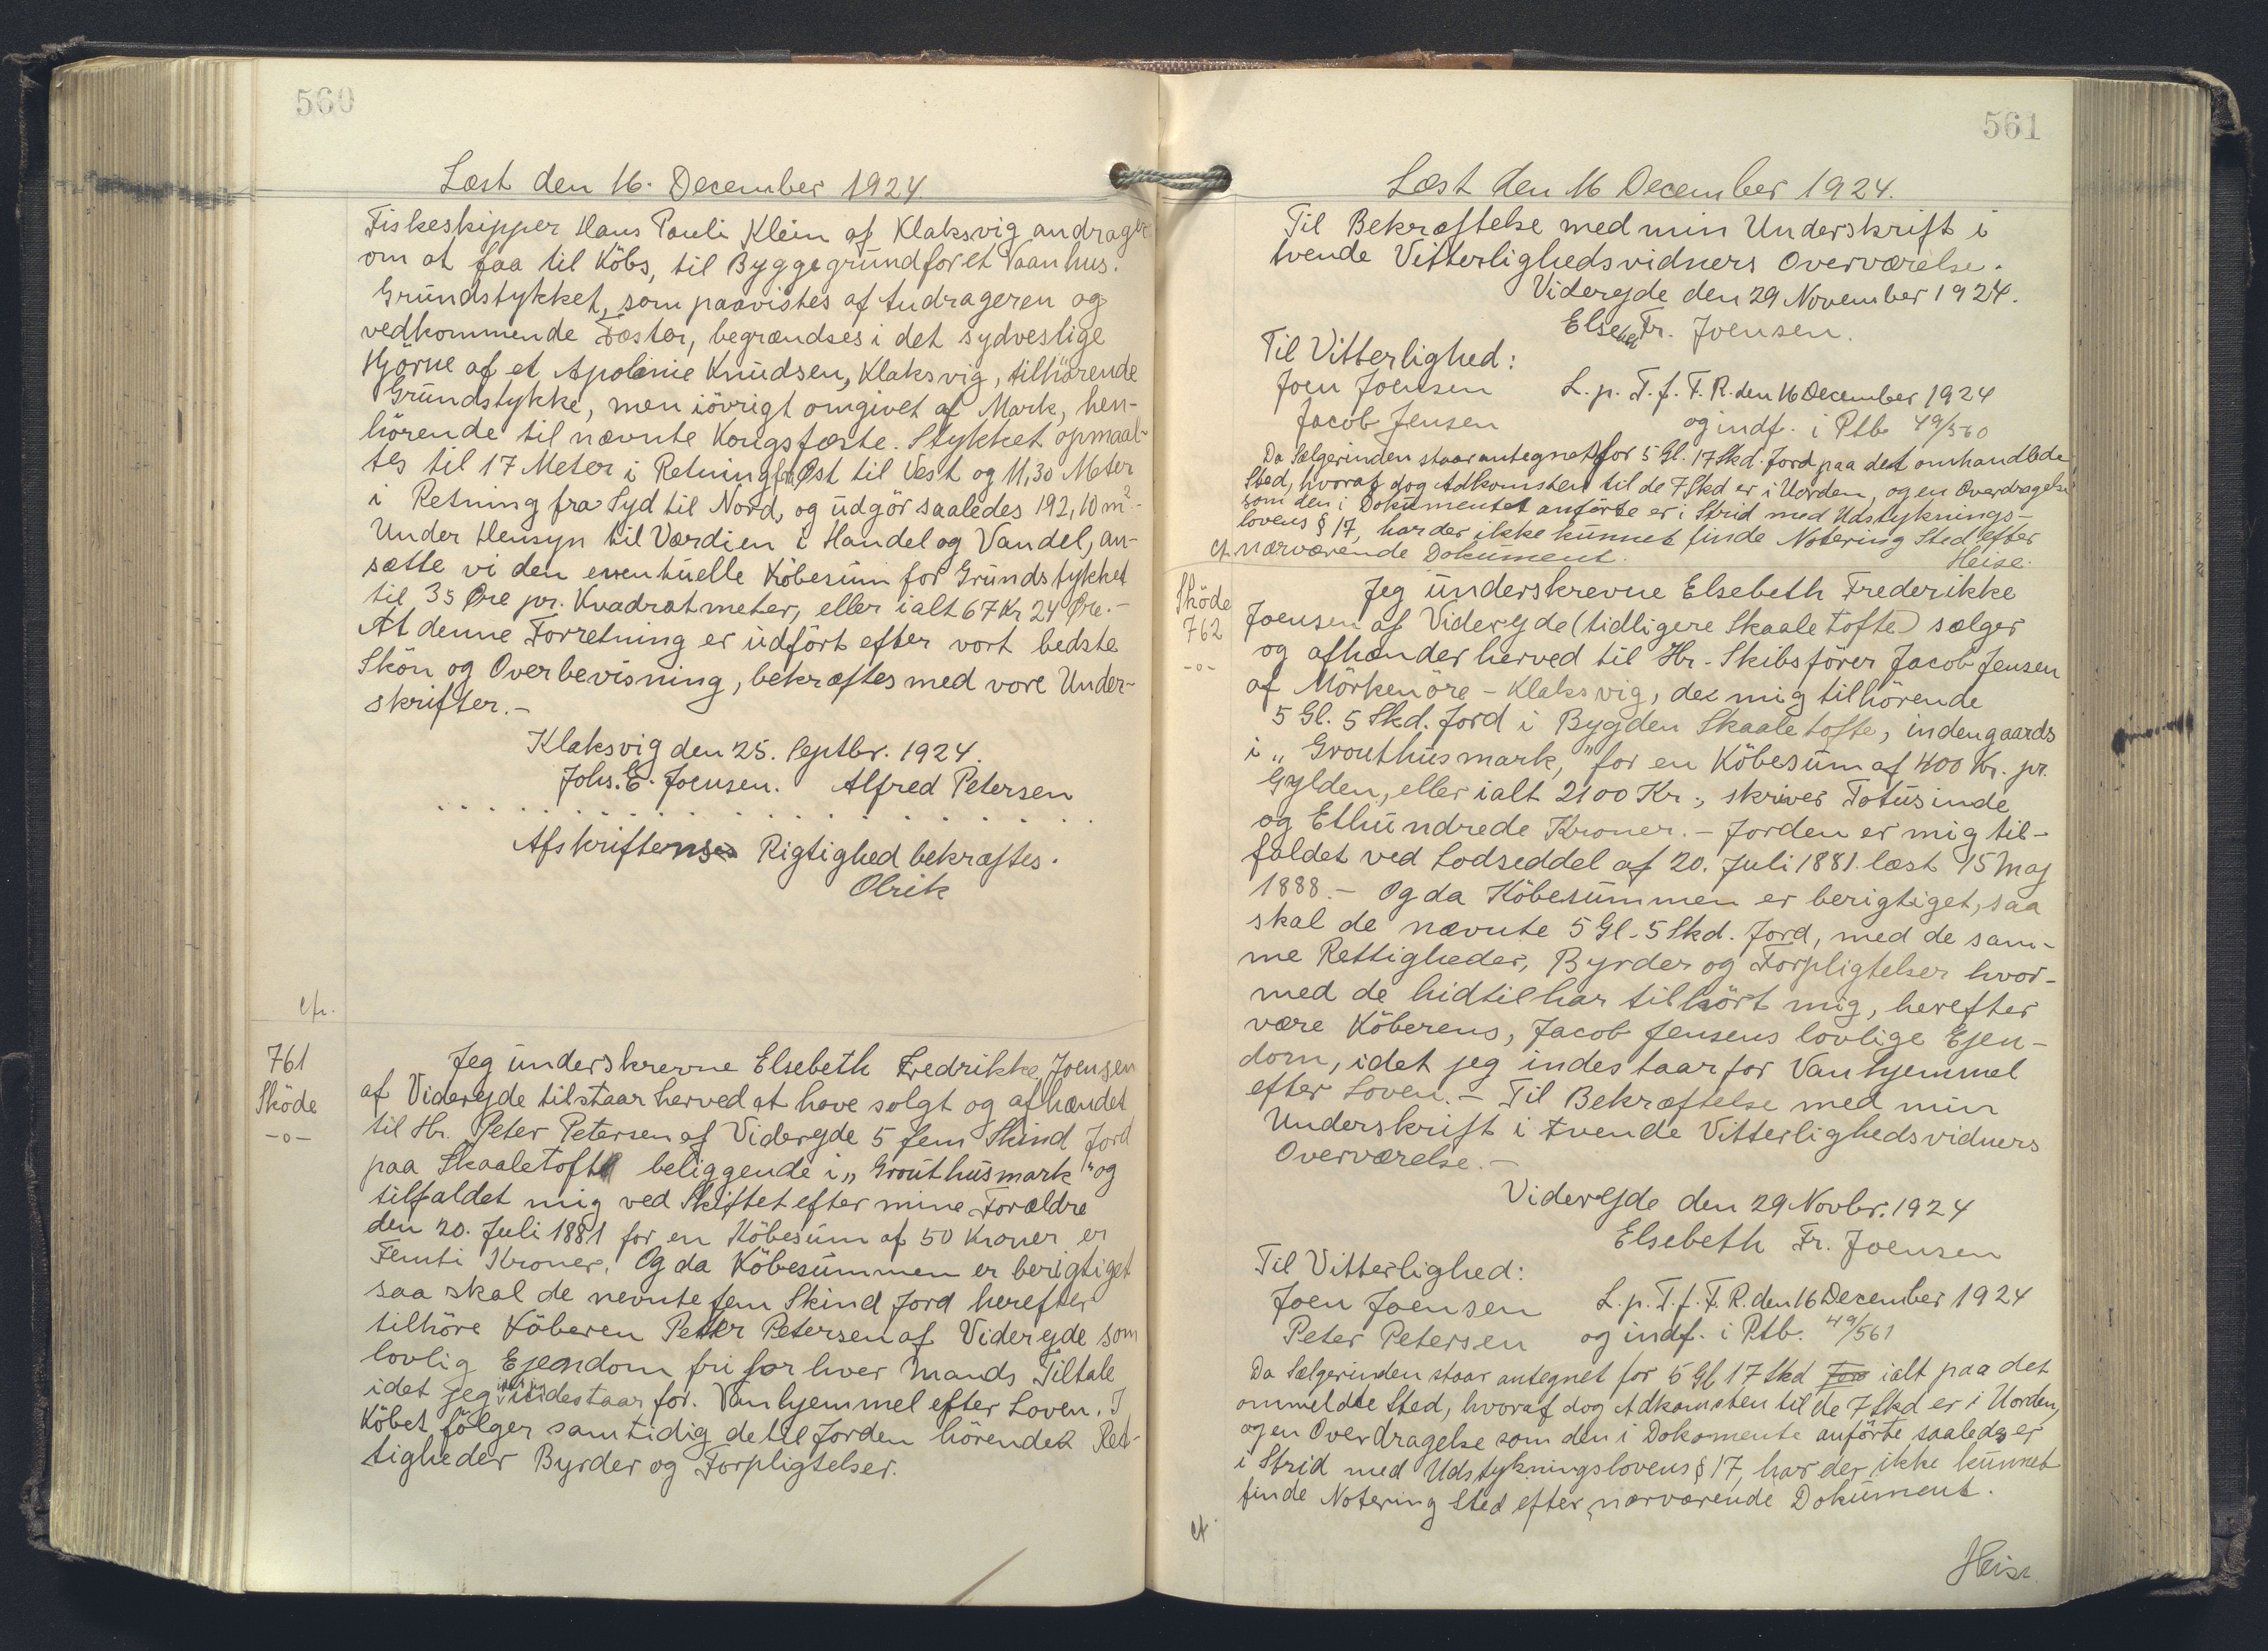 560
Læst den 16. December 1924.
Fiskeskipper Hans Pauli Klein af Klaksvig andrager
om at faa til Købs, til Byggegrund for et Vaanhus.
Grundstykket, som paavistes af Andrageren og
vedkommende Fæster, begrændses i det sydvestlige
Hjörne af et Apolonie Knudsen, Klaksvig, tilhörende
Grundstykke, men iövrigt omgivet af Mark, hen-
hörende til nævnte Kongsfæste. Stykket opmaal-
tes til 17 Meter i Retning fra Øst til Vest og 11,30 Meter
i Retning fra Syd til Nord, og udgör saaledes 192,10 m².-
Under Hensyn til Værdien i Handel og Vandel, an-
sætte vi den eventuelle Köbesum for Grundstykket
til 35 Øre pr. Kvadratmeter, eller ialt 67 Kr 24 Øre.-
At denne Forretning er udfört efter vort bedste
Skön og Overbevisning, bekræftes med vore Under-
skrifter.-
Klaksvig den 25. Septbr. 1924.
Johs. E. Joensen. Alfred Petersen
. . . . . . . . . . . . . . . . . .
Afskriftens Rigtighed bekræftes.
Olrik
cfr.
761
Sköde
-o-
Jeg underskrevne Elsebeth Fredrikke Joensen
af Videreyde tilstaar herved at have solgt og afhændet
til Hr. Peter Petersen af Videreyde 5 fem Skind Jord
paa Skaaletofte beliggende i „Grouthusmark" og
tilfaldet mig ved Skiftet efter mine Forældre
den 20. Juli 1881 for en Köbesum af 50 Kroner er
Femti Kroner. Og da Köbesummen er berigtiget
saa skal de nevnte fem Skind Jord herefter
tilhöre Köberen Peter Petersen af Videreyde som
lovlig Ejendom fri for hver Mands Tiltale
idet jeg indestaar for. Vanhjemmel efter Loven. I
Köbet fölger samtidig de til Jorden hörendes Ret-
tigheder Byrder og Forpligtelser.
561
Læst den 16 December 1924.
Til Bekræftelse med min Underskrift i
tvende Vitterlighedsvidners Overværelse.
Videreyde den 29 November 1924.
Elsebet Fr. Joensen.
Til Vitterlighed:
Joen Joensen L. p. T. f. F. R. den 16 December 1924
Jacob Jensen og indf. i Ptb. 49/560
Da Sælgerinden staar antegnet for 5 Gl. 17 Skd. Jord paa det omhandlede
Sted, hvoraf dog Adkomsten til de 7 Skd er i Uorden, og en Overdragelse
som den i Dokumentet anförte er i Strid med Udstyknings-
lovens § 17, har der ikke kunnet finde Notering Sted efter
nærværende Dokument. Heise.
cf.
Sköde
762
-o-
Jeg underskrevne Elsebeth Frederikke
Joensen af Videreyde (tidligere Skaaletofte) sælger
og afhænder herved til Hr. Skibsförer Jacob Jensen
af Mörkenöre - Klaksvig, de mig tilhörende
5 Gl. 5 Skd. Jord i Bygden Skaaletofte, indengaards
i „Grouthusmark," for en Köbesum af 400 Kr. pr.
Gylden, eller ialt 2100 Kr., skriver Totusinde
og Ethundrede Kroner. - Jorden er mig til-
faldet ved Lodseddel af 20. Juli 1881 læst 15 Maj
1888. - Og da Köbesummen er berigtiget, saa
skal de nævnte 5 Gl. 5 Skd. Jord, med de sam-
me Rettigheder, Byrder og Forpligtelser hvor-
med de hidtil har tilhört mig, herefter
være Köberens, Jacob Jensens lovlige Ejen-
dom, idet jeg indestaar for Vanhjemmel
efter Loven. - Til Bekræftelse med min
Underskrift i tvende Vitterlighedsvidners
Overværelse. -
Videreyde den 29 Novbr. 1924
Elsebeth Fr. Joensen
Til Vitterlighed:
Joen Joensen L. p. T. f. F. R. den 16 December 1924
Peter Petersen og indf. i Ptb. 49/561
Da Sælgerinden staar antegnet for 5 Gl 17 Skd ialt paa det
ommeldte Sted, hvoraf dog Adkomsten til de 7 Skd er i Uorden,
og en Overdragelse som den i Dokomente anförte saaledes er
i Strid med Udstykningslovens § 17, har der ikke kunnet
finde Notering Sted efter nærværende Dokument.
cf.
Heise